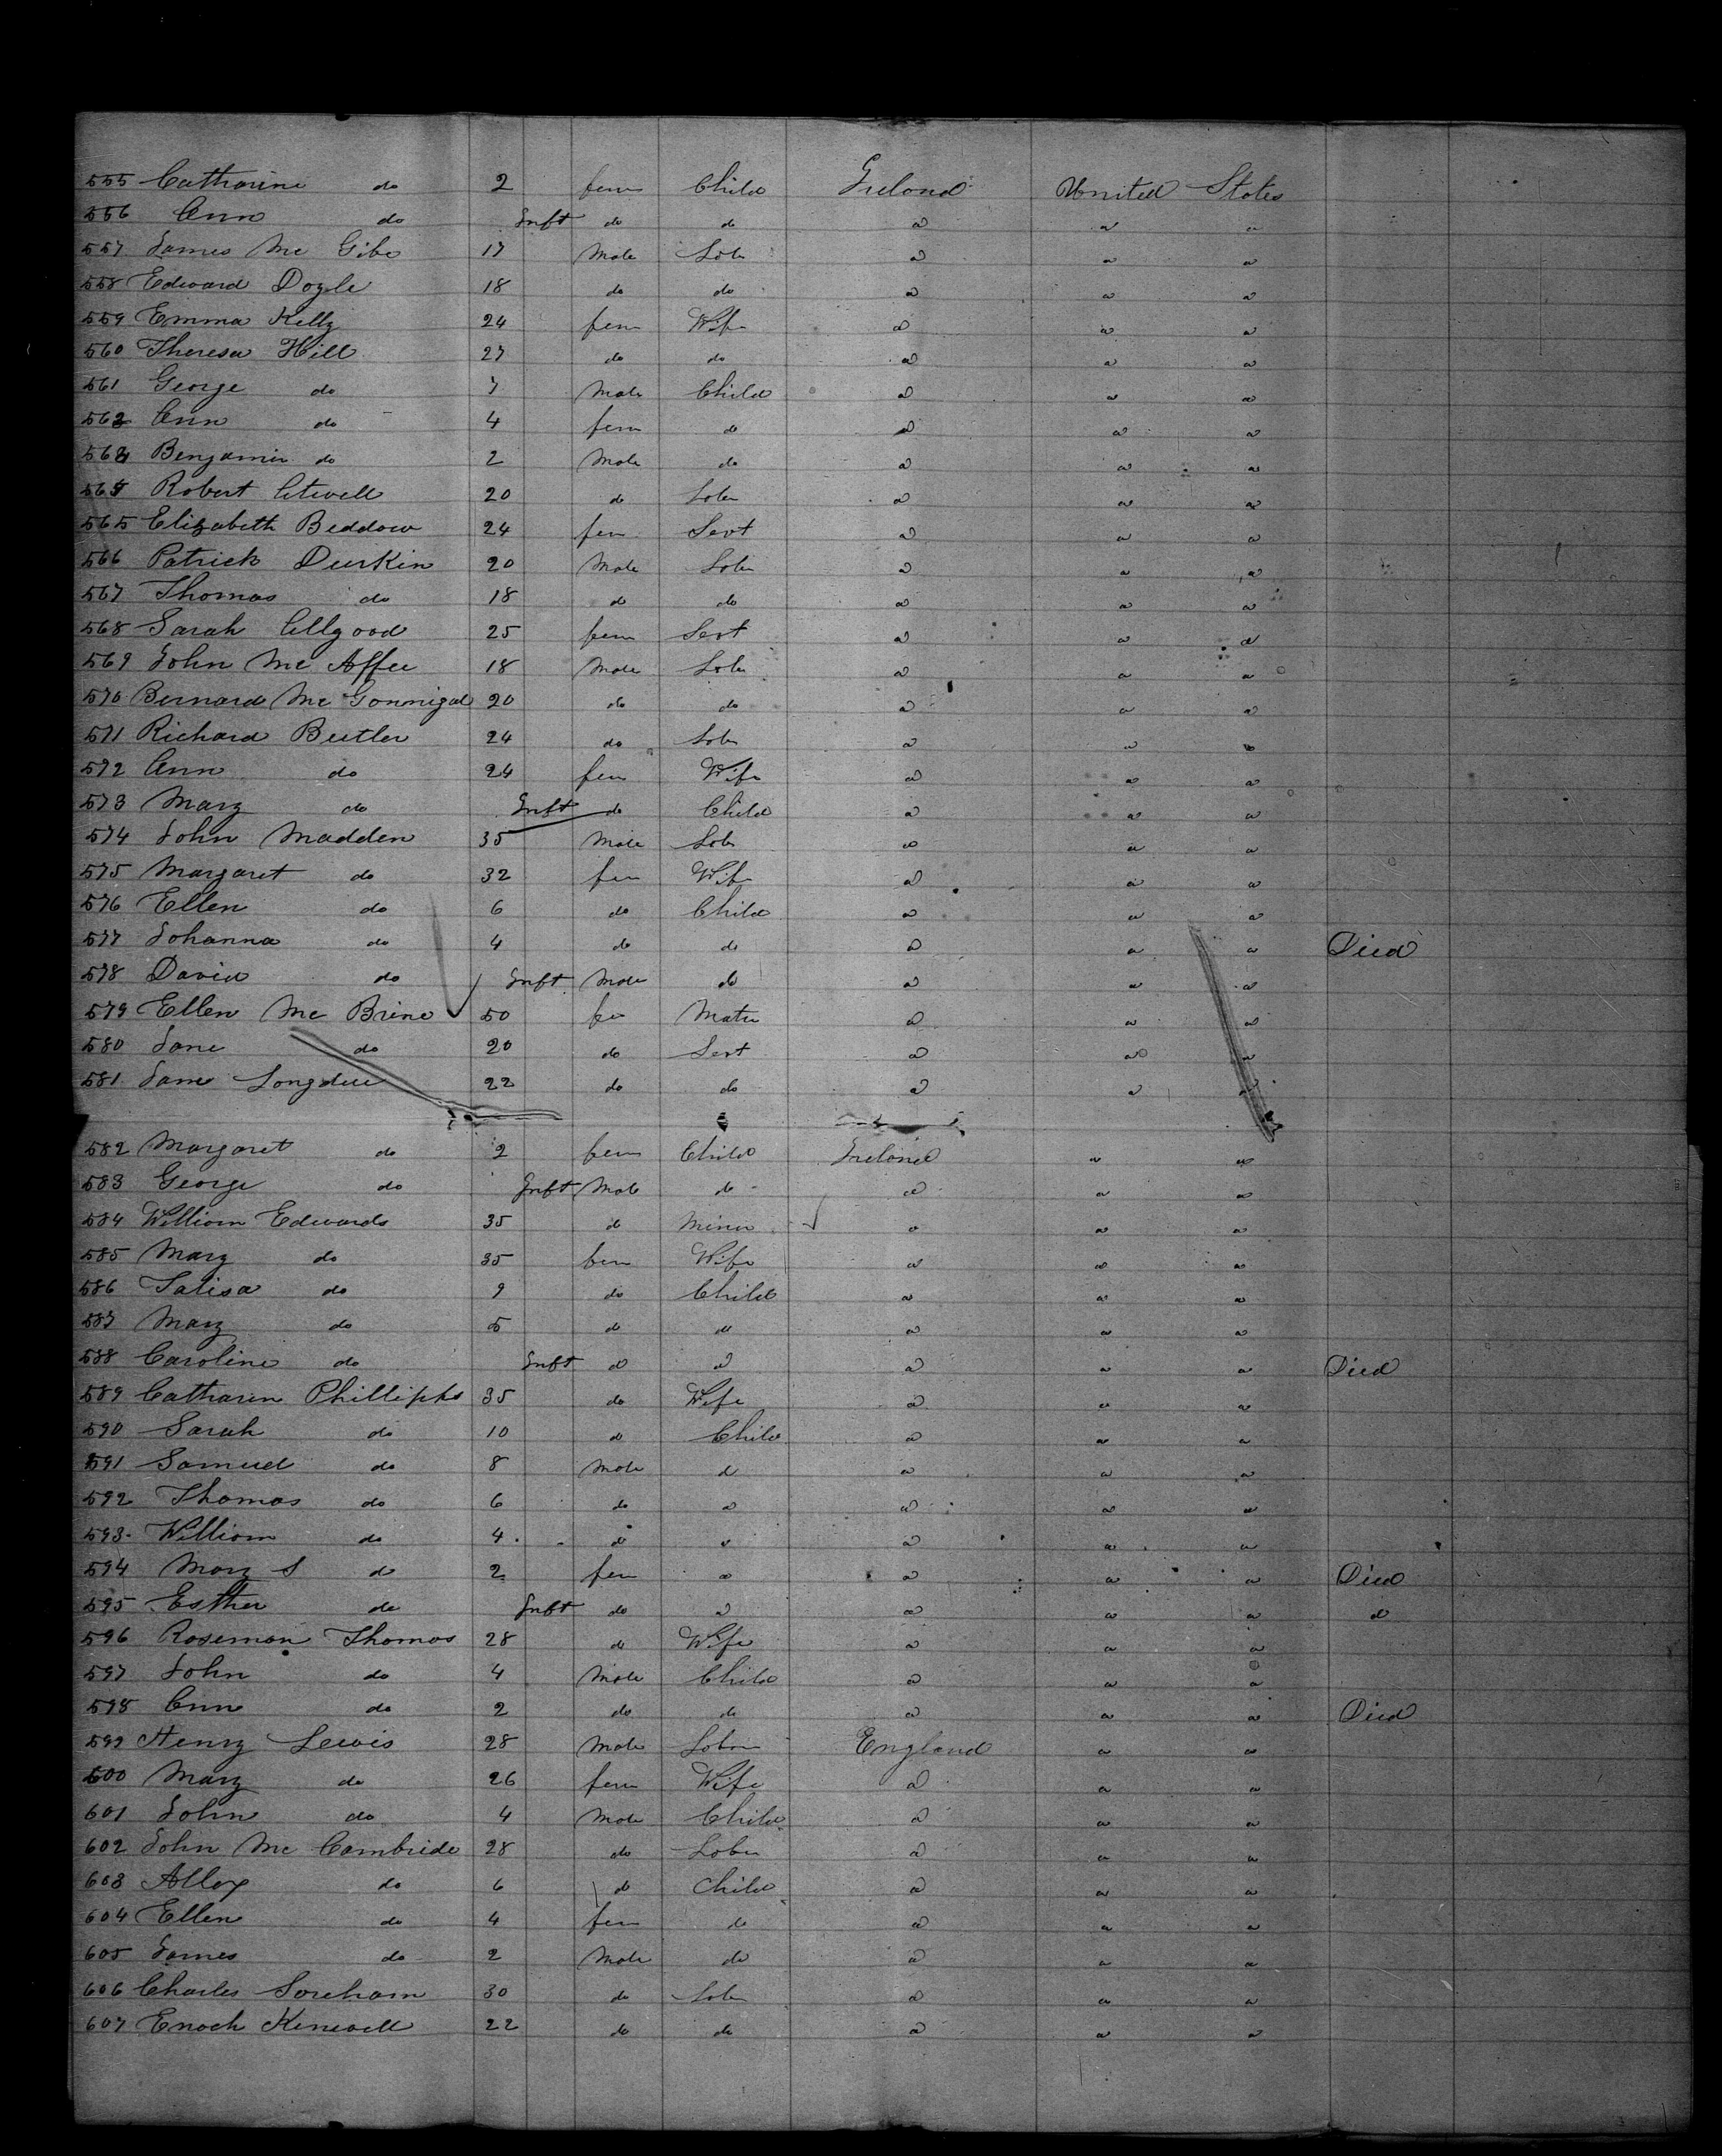 555 Catharine do 2 fem Child Ireland United States
556 Ann do Inft do do do do do
557 James Mc Gibo 17 Male Labr do do do
558 Edward Doyle 18 do do do do do
559 Emma Kelly 24 fem Wife do do do
560 Theresa Hill 27 do do do do do
561 George do 7 Male Child do do do
562 Ann do 4 fem do do do do
563 Benjamin do 2 Male do do do do
564 Robert Atwell 20 do Labr do do do
565 Elizabeth Beddow 24 fem Sevt do do do
566 Patrick Durkin 20 Male Labr do do do
567 Thomas do 18 do do do do do
568 Sarah Allgood 25 fem Sevt do do do
569 John Mc Affee 18 Male Labr do do do
570 Bernard Mc Gonnigal 20 do do do do do
571 Richard Butler 24 do Labr do do do
572 Ann do 24 fem Wife do do do
573 Mary do Inft do Child do do do
574 John Madden 35 Male Labr do do do
575 Margaret do 32 fem Wife do do do
576 Ellen do 6 do Child do do do
577 Johanna do 4 do do do do do Died
578 David do Inft Male do do do do
579 Ellen Mc Brine 50 fem Matr do do do
580 Jane do 20 do Sevt do do do
581 Jane Longdue 22 do do do do do
582 Margaret do 2 fem Child Ireland do do
583 George do Inft Male do do do do
584 William Edwards 35 do Miner do do do
585 Mary do 35 fem Wife do do do
586 Talisa do 9 do Child do do do
587 Mary do 5 do do do do do
588 Caroline do Inft do do do do do Died
589 Catharin Phillipps 35 do Wife do do do
590 Sarah do 10 do Child do do do
591 Samuel do 8 Male do do do do
592 Thomas do 6 do do do do do
593 William do 4 do do do do do
594 Mary S do 2 fem do do do do Died
595 Esther do Inft do do do do do do
596 Roseman Thomas 28 do Wife do do do
597 John do 4 Male Child do do do
598 Ann do 2 do do do do do Died
599 Henry Lewis 28 Male Labr England do do
600 Mary do 26 fem Wife do do do
601 John do 4 Male Child do do do
602 John Mc Cambride 28 do Labr do do do
603 Allex do 6 do Child do do do
604 Ellen do 4 fem do do do do
605 James do 2 Male do do do do
606 Charles Soreham 30 do Labr do do do
607 Enoch Kenwell 22 do do do do do